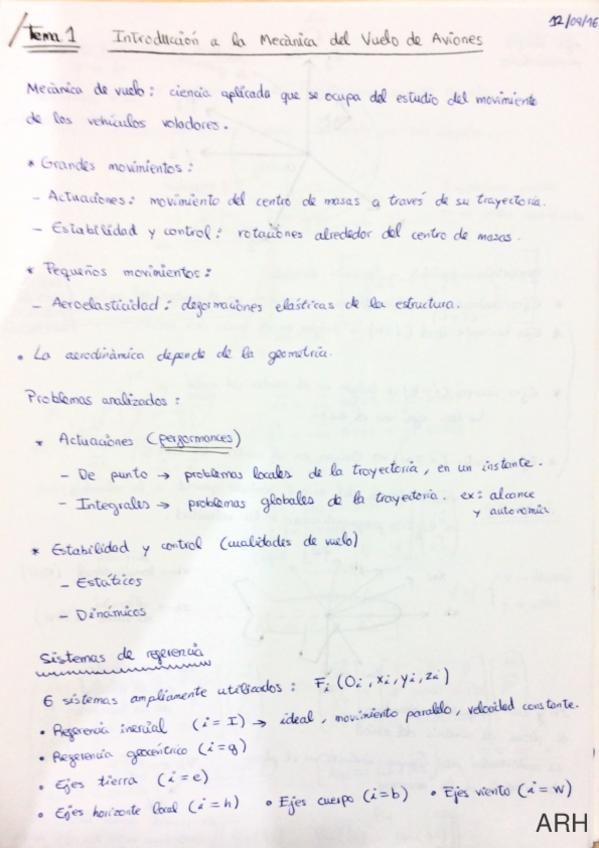 12/09/16
Tema 1 Introducción a la Mecànica del Vuelo de Aviones
Mecànica de vuelo: ciencia aplicada que se ocupa del estudio del movimiento
de los vehículos voladores.
* Grandes movimientos:
- Actuaciones: movimiento del centro de masas a través de su trayectoria.
- Estabilidad y control: rotaciones alrededor del centro de masas.
* Pequeños movimientos:
- Aeroelasticidad: deformaciones elásticas de la estructura.
• La aerodinàmica depende de la geometría.
Problemas analizados:
* Actuaciones (performances)
- De punto → problemas locales de la trayectoria, en un instante.
- Integrales → problemas globales de la trayectoria. ex: alcance
y autonomía.
* Estabilidad y control (cualidades de vuelo)
- Estáticos
- Dinámicos
Sistemas de referencia
6 sistemas ampliamente utilizados: Fi (Oi, xi, yi, zi)
• Referencia inercial (i = I) → ideal, movimiento paralelo, velocidad constante.
• Referencia geocéntrico (i = g)
• Ejes tierra (i = e)
• Ejes horizonte local (i = h) • Ejes cuerpo (i = b) • Ejes viento (i = w)
ARH